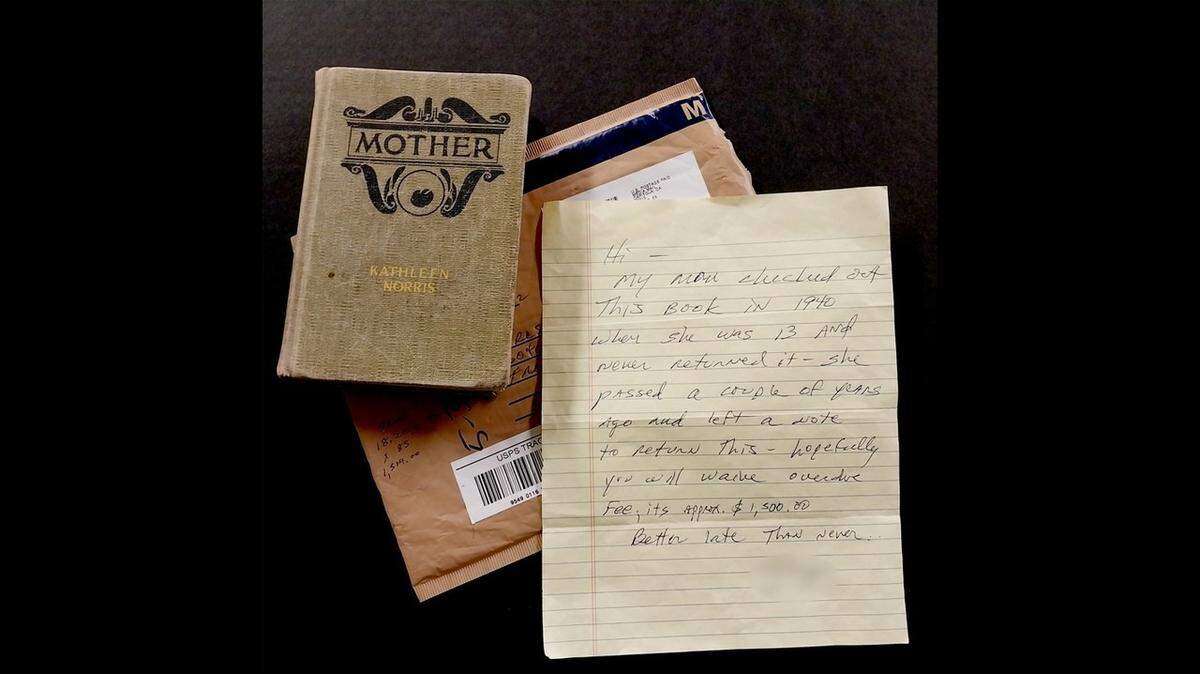 MOTHER
KATHLEEN
NORRIS
M
U.S. POSTAGE PAID
USPS TRAC
9549 0116
1,514.00
Hi —
My mom checked out
This Book in 1940
when she was 13 And
never returned it – she
passed a couple of years
Ago and left a note
to return This – hopefully
you will waive overdue
Fee, its Approx. $1,500.00
Better late Than never..